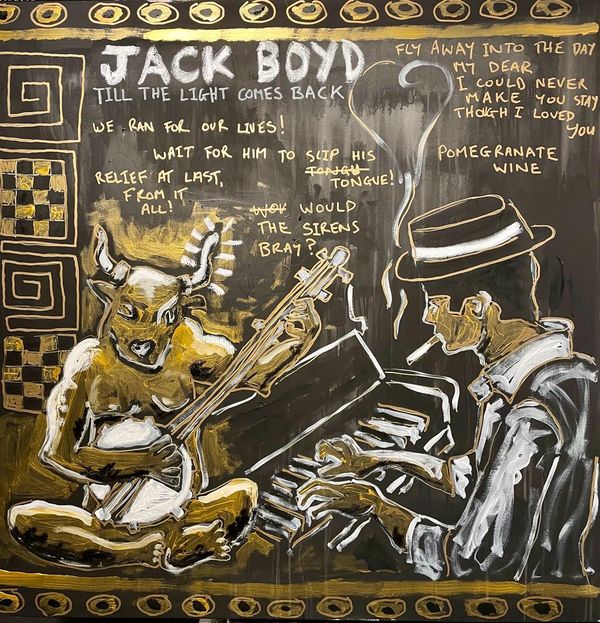 JACK BOYD
TILL THE LIGHT COMES BACK
WE RAN FOR OUR LIVES!
WAIT FOR HIM TO SLIP HIS
TONGU
TONGUE!
RELIEF AT LAST,
FROM IT
ALL!
WOULD
THE SIRENS
BRAY?
FLY AWAY INTO THE DAY
MY DEAR
I COULD NEVER
MAKE YOU STAY
THOUGH I LOVED
YOU
POMEGRANATE
WINE